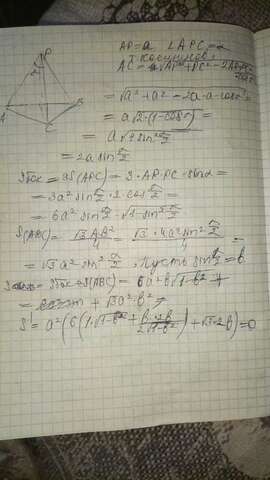 P
A
B
C
AP = a ∠APC = α
AC = √AP² + PC² - 2AP·PC·
= √a² + a² - 2a·a·cosα =
= a√2·(1 - cosα) =
= 2a sin α/2
Sбок = 3S(APC) = 3·AP·PC·sinα =
= 3a² sin α/2 · 2 cos α/2 =
= 6a² sin α/2 · √1 - sin² α/2
S(ABC) = √3 AB²/4 = √3·4a² sin² α/2 / 4 =
= √3 a² sin² α/2, Пусть sin α/2 = b
= Sбок + S(ABC) = 6a² b √1 - b² +
+ √3a²·b²
S' = a²(6(1·√1-b² + b·-2b / 2√1-b²) + √3·2b) = 0